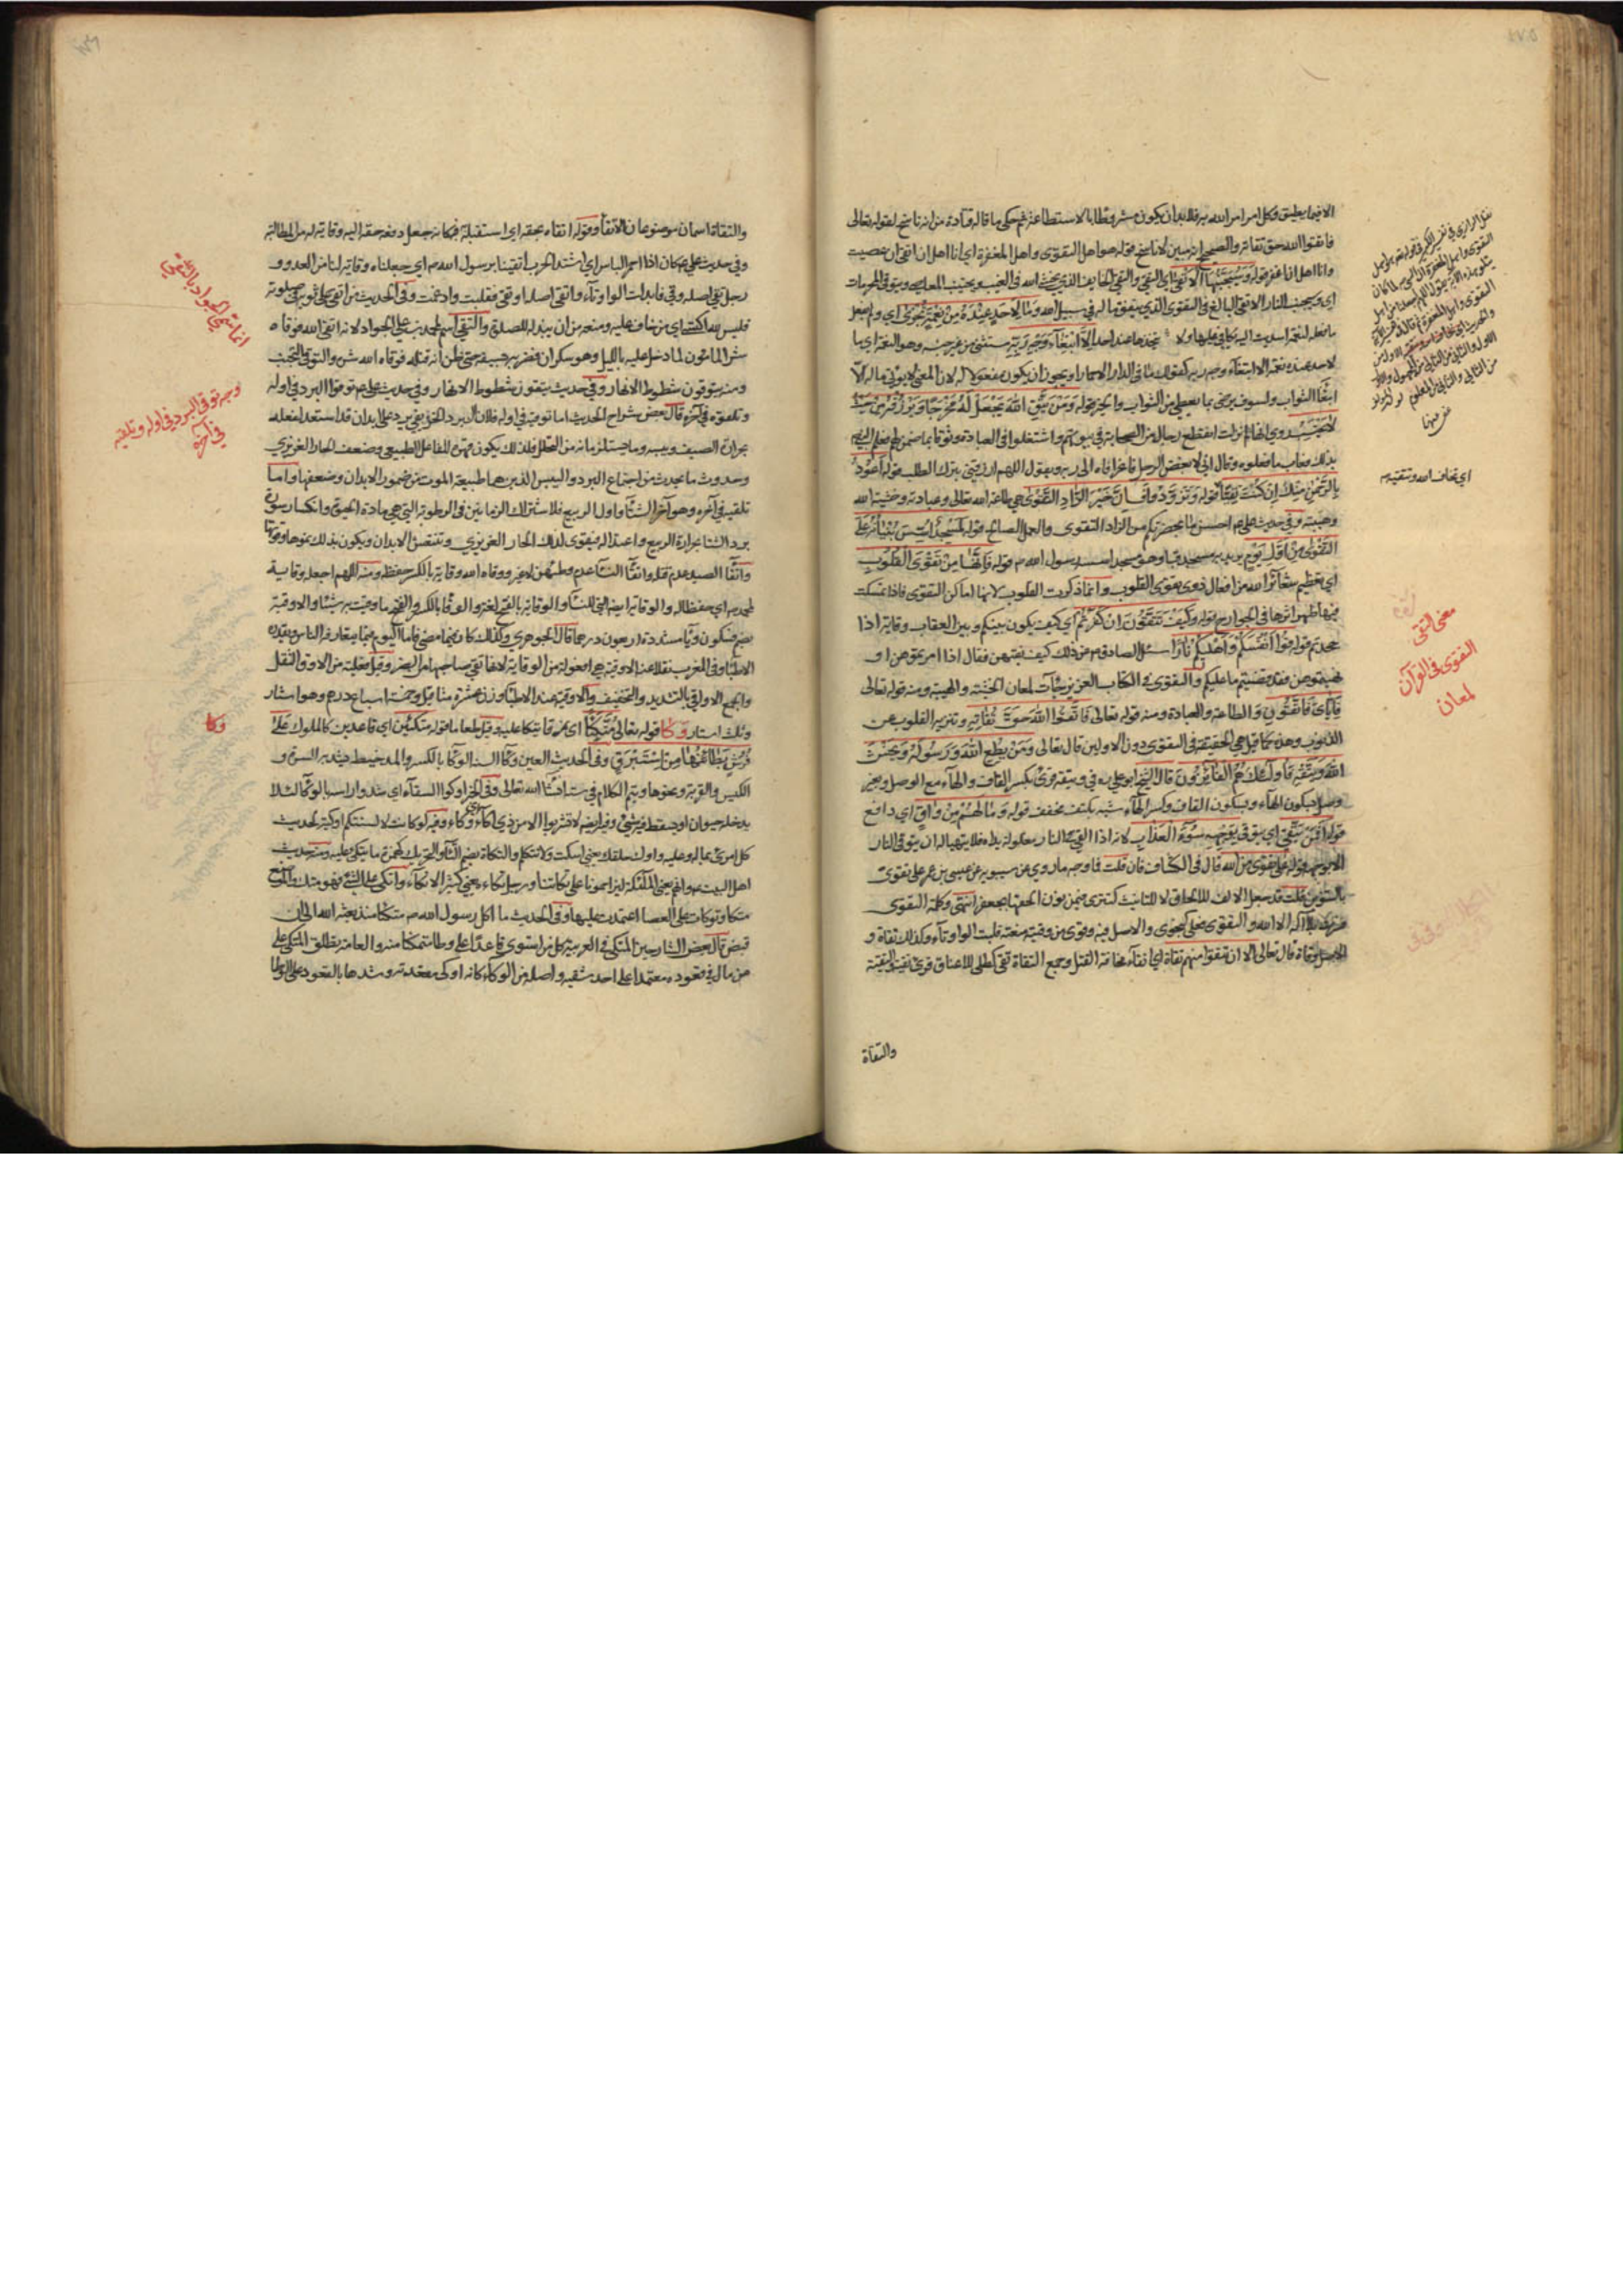 الا فيما يطيق وكل امر امر الله به فلا بد ان يكون مشروطا بالاستطاعة ثم حكى ما قاله قتادة من انه ناسخ لقوله تعالى
فاتقوا الله حق تقاته والصحيح انه مبين لا ناسخ قوله هو اهل التقوى واهل المغفرة اي انا اهل ان اتقى ان عصيت
وانا اهل ان اغفر قوله وسيجنبها الاتقى اي التقي والتقي الخايف الذي يخشى الله في الغيب ويجتنب المعاصي ويتوقى المحرمات
اي وسيجنب النار الاتقى البالغ في التقوى الذي ينفق ماله في سبيل الله وما لاحد عنده من نعمة تجزى اي ولم يفعل
ما فعله لنعمة اسديت اليه يكافي عليها ولا يتخذها عند احد الا ابتغاء وجه ربه مستثنى من غير جنسه وهو النعمة اي ما
لاحد عنده نعمة الا ابتغاء وجه ربه كقولك ما في الدار الا حمارا ويجوز ان يكون مفعولا له لان المعنى لا يؤتي ماله الا
ابتغاء الثواب ولسوف يرضى بما يعطى من الثواب والخير قوله ومن يتق الله يجعل له مخرجا ويرزقه من حيث
لا يحتسب روي انها لما نزلت انقطع رجال من الصحابة في بيوتهم واشتغلوا في العبادة وثوقا بما ضمن لهم فعلم النبي ص
بذلك فعاب ما فعلوه وقال اني لابغض الرجل فاغرا فاه الى ربه ويقول اللهم ارزقني بترك الطلب قوله اعوذ
بالرحمن منك ان كنت تقيا قوله وتزودوا فان خير الزاد التقوى هي طاعة الله تعالى وعبادته وخشية الله
وهيبته وفي حديث علي ع احسن ما بحضرتكم من الزاد التقوى والعمل الصالح قوله لمسجد اسس بنيانه على
التقوى من اول يوم يريد به مسجد قبا وهو مسجد اسسه رسول الله ص قوله فانها من تقوى القلوب
اي تعظيم شعائر الله من افعال ذوي تقوى القلوب وانما ذكرت القلوب لانها اماكن التقوى فاذا تمكنت
فيها ظهر اثرها في الجوارح قوله وكيف تتقون ان كفرتم اي كيف يكون بينكم وبين العقاب وقاية اذا
جحدتم قوله قوا انفسكم واهليكم نارا سئل الصادق ع عن ذلك كيف نقيهن فقال اذا امرتموهن و
نهيتموهن فقد قضيتم ما عليكم والتقوى في الكتاب العزيز جاءت لمعان الخشية والهيبة ومنه قوله تعالى
واياي فاتقون والطاعة والعبادة ومنه قوله تعالى فاتقوا الله حق تقاته وتنزيه القلوب عن
الذنوب وهذه كما قيل هي الحقيقة في التقوى دون الاولين قال تعالى ومن يطع الله ورسوله ويخش
الله ويتقه فاولئك هم الفائزون قال الشيخ ابو علي ره في ويتقه قرئ بكسر القاف والهاء مع الوصل وبغير
وصل وبسكون الهاء وبسكون القاف وكسر الهاء شبه بكتف مخفف قوله وما لهم من واق اي دافع
قوله افمن يتقي اي يتوقى بوجهه سوء العذاب لانه اذا القي في النار مغلولة يداه فلا يتهيأ له ان يتوقى النار
الا بوجهه قوله على تقوى من الله قال في الكشاف فان قلت فما وجه ما روي عن سيبويه عن عيسى بن عمر على تقوى
بالتنوين قلت قد جعل الالف للالحاق لا للتانيث كتترى فيمن نون الحقها بجعفر انتهى وكلمة التقوى
لا اله الا الله والتقوى فعلى كنجوى والاصل فيه وقوى من وقيته منعته قلبت الواو تاء وكذلك تقاة و
الاصل وقاة قال تعالى الا ان تتقوا منهم تقاة اي اتقاء مخافة القتل وجمع التقاة تقى كطلى للاعناق قرئ تقية والتقية
والتقاة
معنى التقى
التقوى في القرآن
لمعان
اي يخاف الله ويتقيه
والتقاة اسمان موضوعان للاتقاء وقوله اتقاه بحقه اي استقبله به فكانه جعل دفعه حقه اليه وقاية له من المطالبة
وفي حديث علي ع كان اذا احمر الباس اي اشتد الحرب اتقينا برسول الله ص اي جعلناه وقاية لنا من العدو و
رجل تقي اصله وقي فابدلت الواو تاء واتقى اصله اوتقى فقلبت وادغمت وفي الحديث من اتقى على ثوبه في صلوته
فليس لله اكتسى اي من خاف عليه ومنعه من ان يبذله للصلوة والتقي اسم لمحمد بن علي الجواد لانه اتقى الله فوقاه
شر المامون لما دخل عليه بالليل وهو سكران فضربه بسيفه حتى ظن انه قتله فوقاه الله شره والتوقي التجنب
ومنه يتوقون شطوط الانهار وفي حديث يتقون شطوط الانهار وفي حديث علي ع توقوا البرد في اوله
وتلقوه في آخره قال بعض شراح الحديث اما توقيه في اوله فلان البرد الخريفي يرد على ابدان قد استعدت
بحرارة الصيف ويبسه وما يستلزمانه من التحلل فلذلك يكون قهره للفاعل الطبيعي وضعف الحار الغريزي
وحدوث ما يحدث من اجتماع البرد واليبس اللذين هما طبيعة الموت من ضمور الابدان وضعفها واما
تلقيه في آخره وهو آخر الشتاء واول الربيع فلاشتراك الزمانين في الرطوبة التي هي مادة الحيوة وانكسار سورة
برد الشتا بحرارة الربيع واعتداله فيقوى لذلك الحار الغريزي وتنتعش الابدان ويكون بذلك نموها وقوتها
ووقاه الله وقاية بالكسر حفظه ومنه اللهم اجعله وقاية
لمحمد ص اي حفظا له والوقاية ايضا التي للنساء والوقاية بالفتح لغة والوقاء بالكسر والفتح ما وقيت به شيئا والاوقية
بضم فسكون وياء مشددة اربعون درهما قال الجوهري وكذلك كان فيما مضى فاما اليوم فيما يتعارفه الناس ويقدره
الاطباء وفي المغرب نقلا عنه الاوقية هي افعولة من الوقاية لانها تقي صاحبها من الضرر وقيل فعلية من الاوق الثقل
والجمع الاواقي بالتشديد والتخفيف والاوقية عند الاطباء وزن عشرة مثاقيل وخمسة اسباع درهم وهو استار
وثلث استار وكا قوله تعالى متكئا اي نمرقا يتكا عليه وقيل طعاما قوله متكئين اي قاعدين كالملوك على
فرش بطائنها من استبرق وفي الحديث العين وكاء السه الوكاء بالكسر والمد خيط يشد به السرة و
الكيس والقربة ونحوها ويتم الكلام في سته انشا الله تعالى وفي الخبر اوكوا السقاء اي شدوا راسه بالوكاء لئلا
يدخله حيوان او يسقط فيه شيء وفيه ايضا لا تشربوا الا من ذي اكاء اي وكاء وفيه لو كانت لالسنتكم اوكية لحدثت
كل امرئ بما له وعليه واوك حلقك يعني اسكت ولا تتكلم والتكاة بضم التاء والتحريك كهمزة ما يتكئ عليه ومنه حديث
اهل البيت ع وانهم يعني الملئكة ليزاحمونا على تكأتنا ورجل تكاءة يعني كثير الاتكاء واتكى على الشيء فهو متكئ والموضع
متكا وتوكات على العصا اعتمدت عليها وفي الحديث ما اكل رسول الله ص متكئا منذ بعثه الله الى ان
قبض قال بعض الشارحين المتكئ في العربية كل من استوى قاعدا على وطاء متمكنا منه والعامة يطلق المتكئ على
من مال في قعوده معتمدا على احد شقيه واصله من الوكاء كانه اوكى مقعدته وشدها بالقعود على الوطا
انما سمي الجواد بالتقي
وجه توقي البرد في اوله وتلقيه
في آخره
وكا